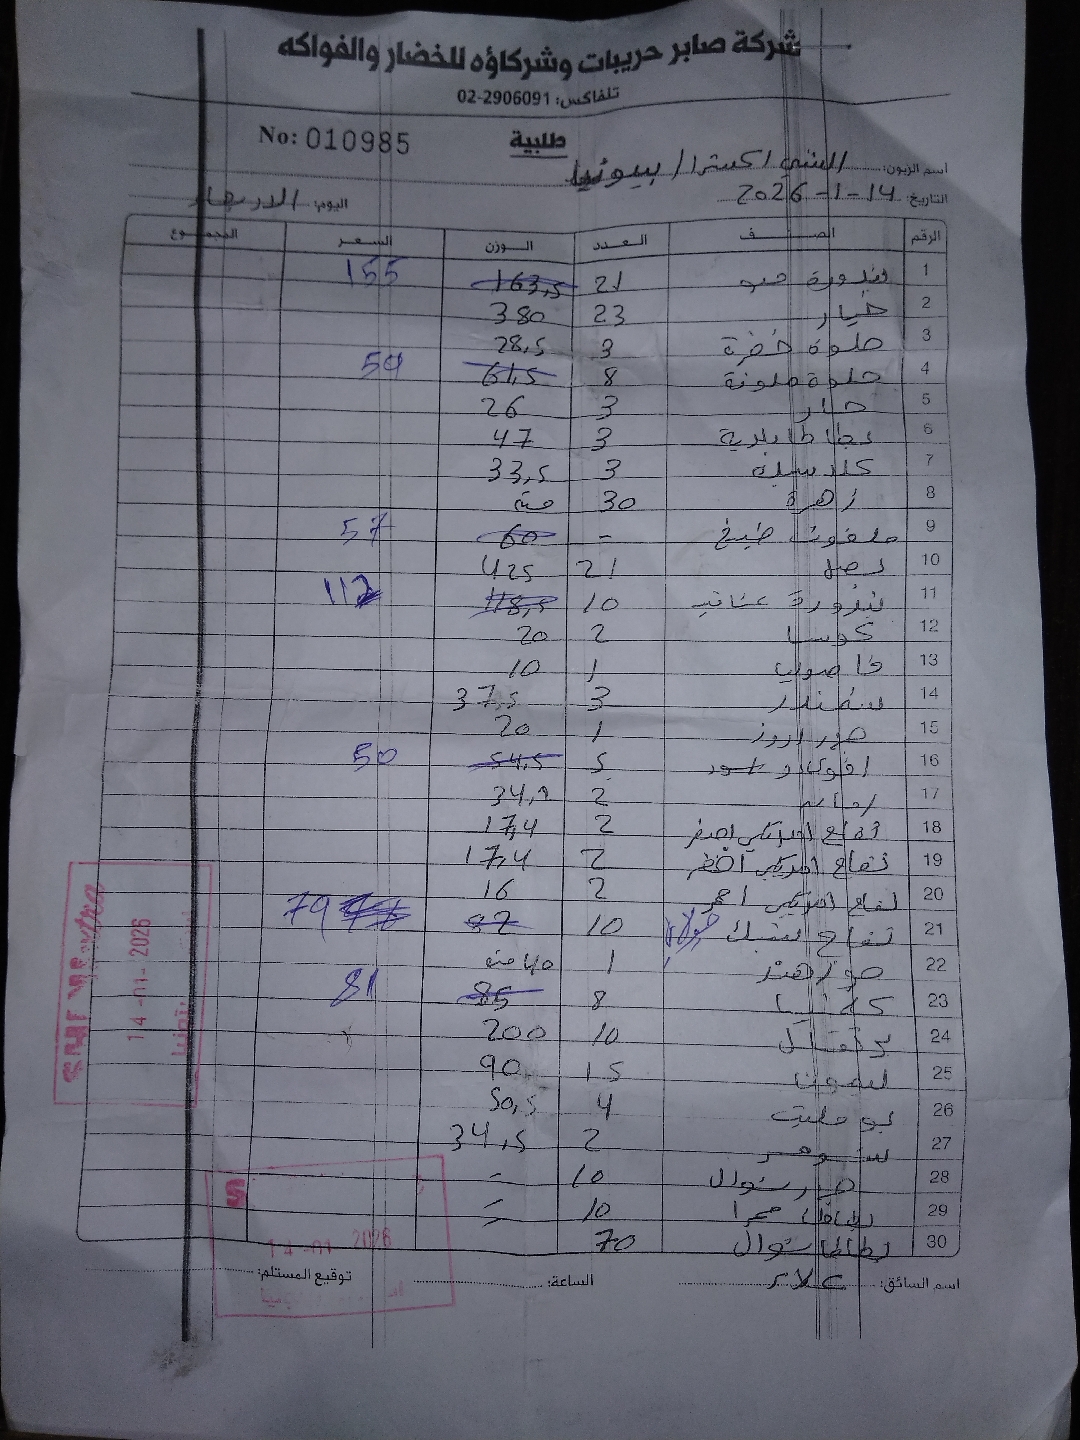 شركة صابر حريبات وشركاؤه للخضار والفواكه
تلفاكس: 02-2906091
No: 010985
طلبية
اسم الزبون: الشني اكسترا / بيتونيا
التاريخ: 14-1-2026 اليوم: الاربعاء
الرقم الصنف العدد الوزن السعر المجموع
1 بندورة حبو 21 163,5 155
2 خيار 23 380
3 حلوة خضرة 3 28,5
4 حلوة ملونة 8 61,5 59
5 حار 3 26
6 بطاطا بلدية 3 47
7 كلاسيك 3 33,5
8 زهرة 30 حبة
9 ملفوف طبيخ - 60 57
10 بصل 21 425
11 بندورة عناقيد 10 118,5 112
12 كوسا 2 20
13 فاصوليا 1 10
14 شمندر 3 37,5
15 جزر 1 20
16 افوكادو 5 54,5 50
17 2 34,2
18 تفاح امريكي اصفر 2 17,4
19 تفاح امريكي اخضر 2 17,4
20 تفاح امريكي احمر 2 16
21 تفاح 10 82 79
22 جوز هند 1 40 حبة
23 8 85 81
24 برتقال 10 200
25 ليمون 15 90
26 بوملي 4 50,5
27 2 34,5
28 جزر شوال 10 -
29 بطاطا حمرا 10 -
30 بطاطا شوال 70
اسم السائق: علاء الساعة: توقيع المستلم:
14-01-2026
14-01-2026